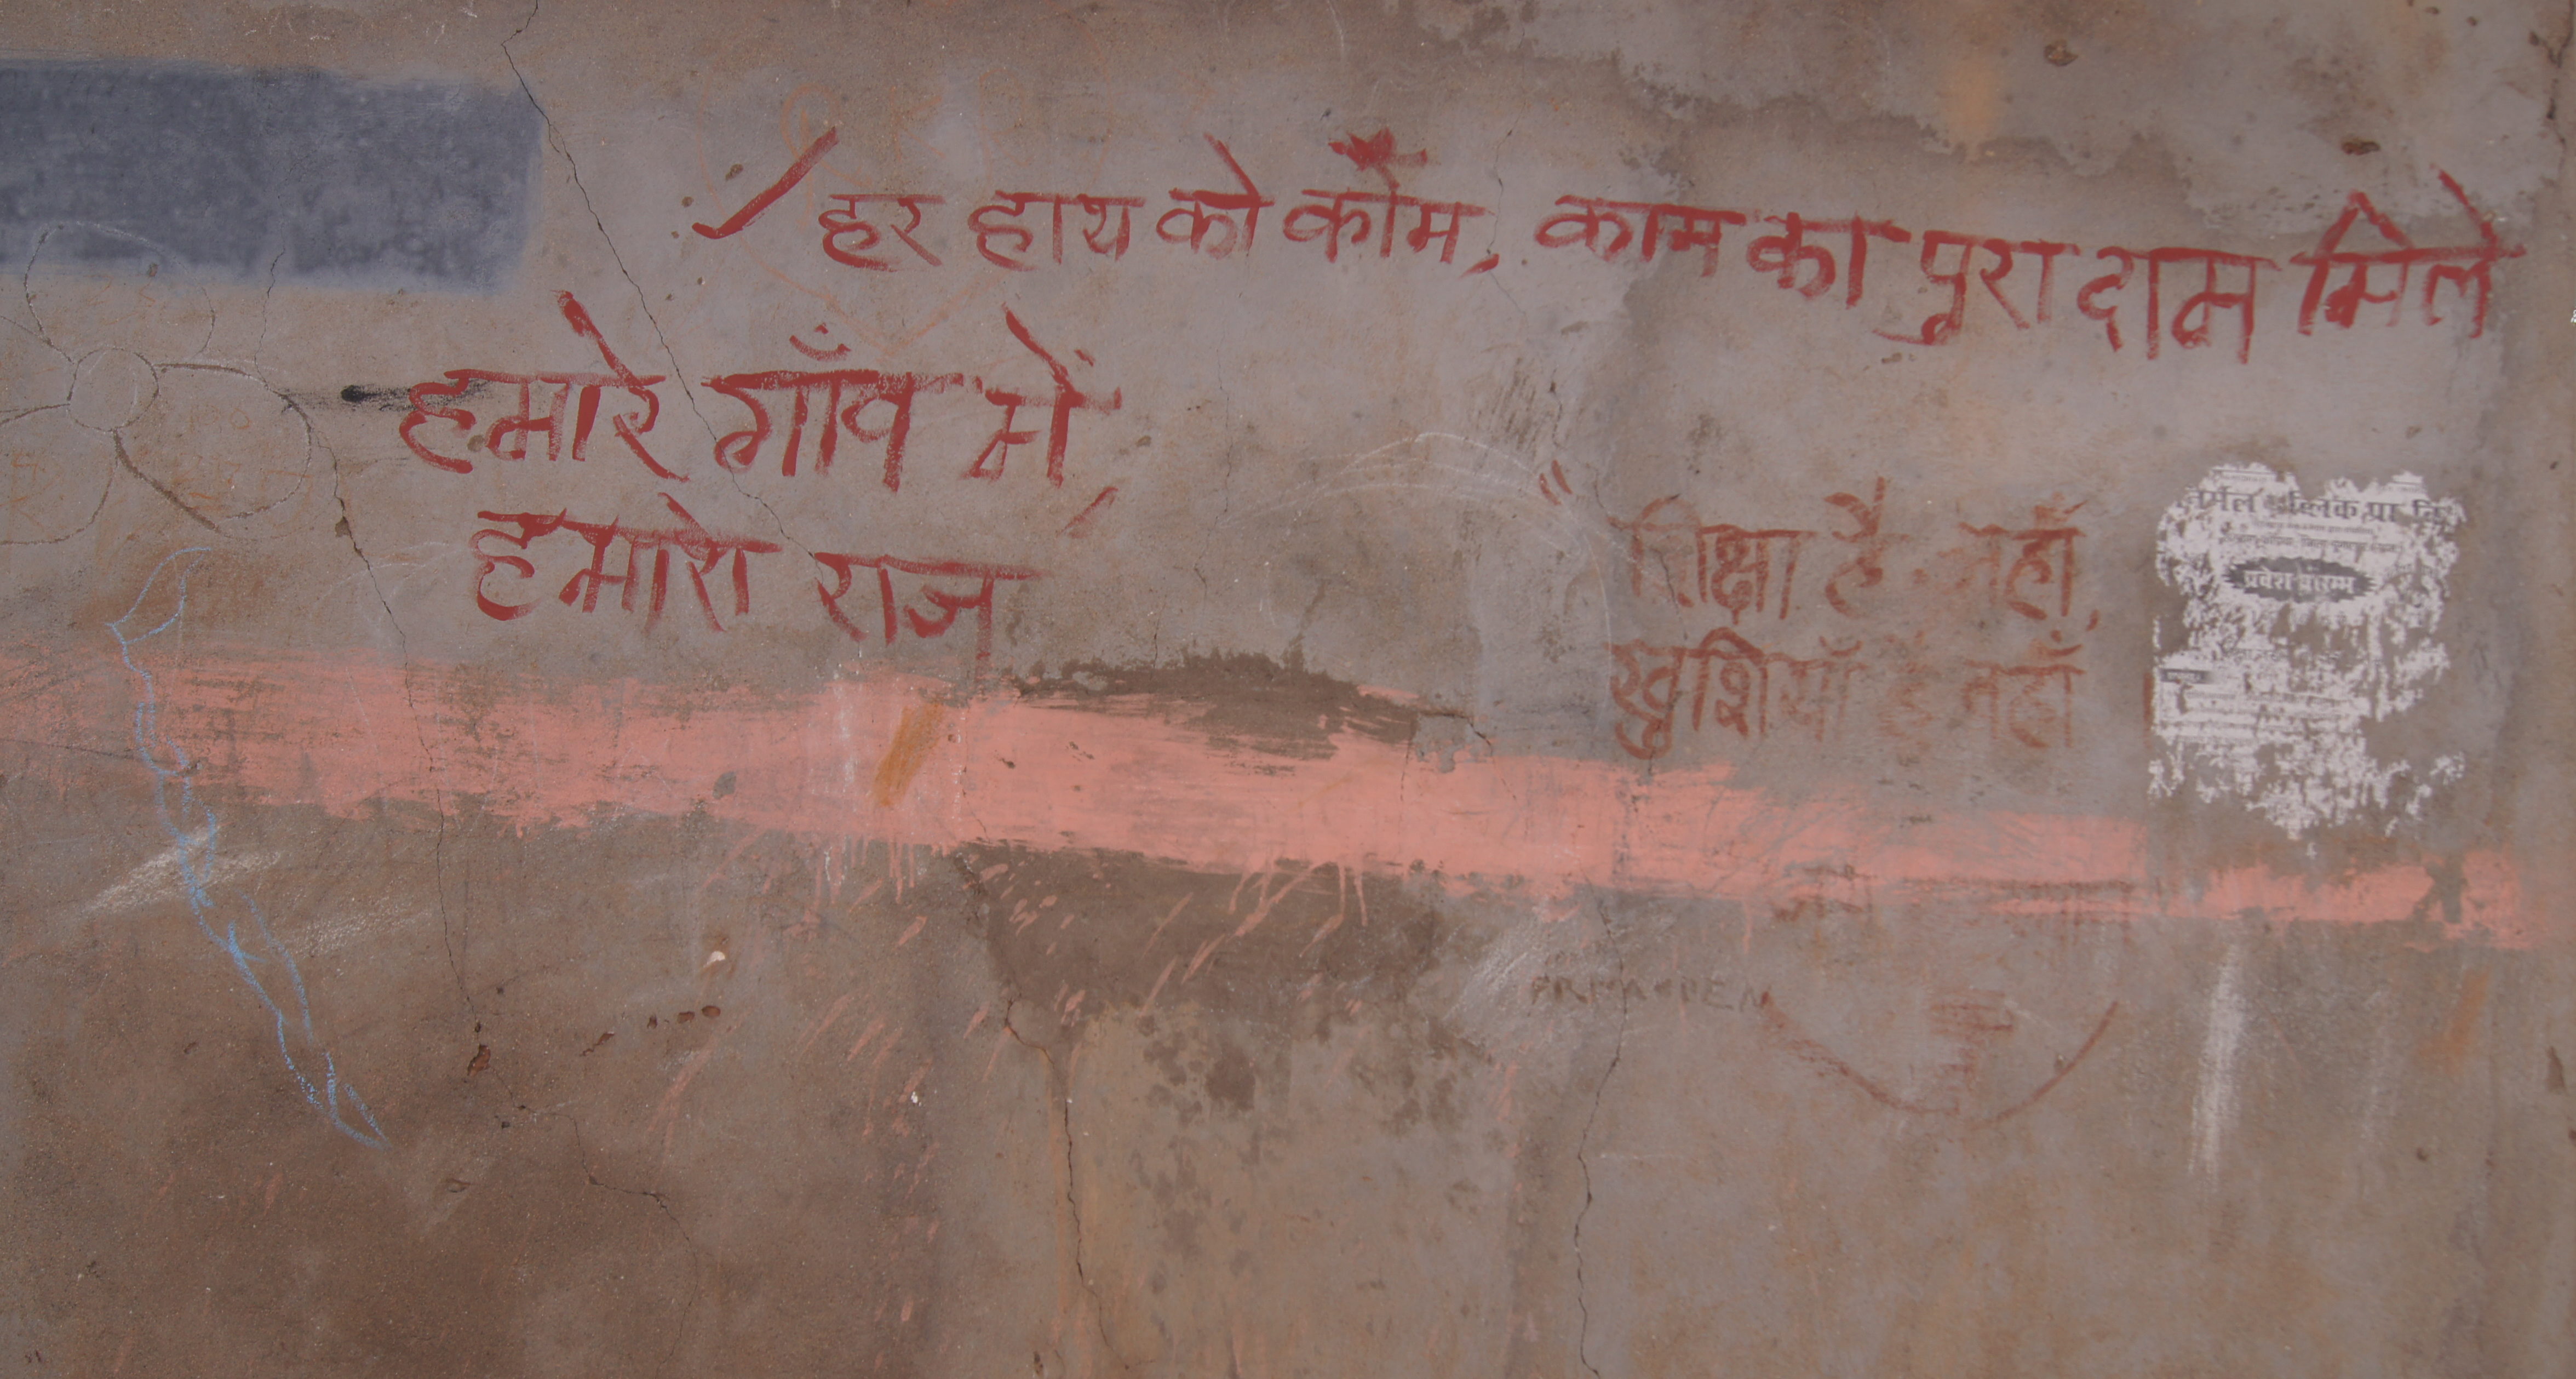 हर हाथ को काम, काम का पुरा दाम मिले
हमारे गाँव में,
हमारा राज
शिक्षा है जहाँ,
खुशियाँ है वहाँ
प्रवेश प्रारम्भ